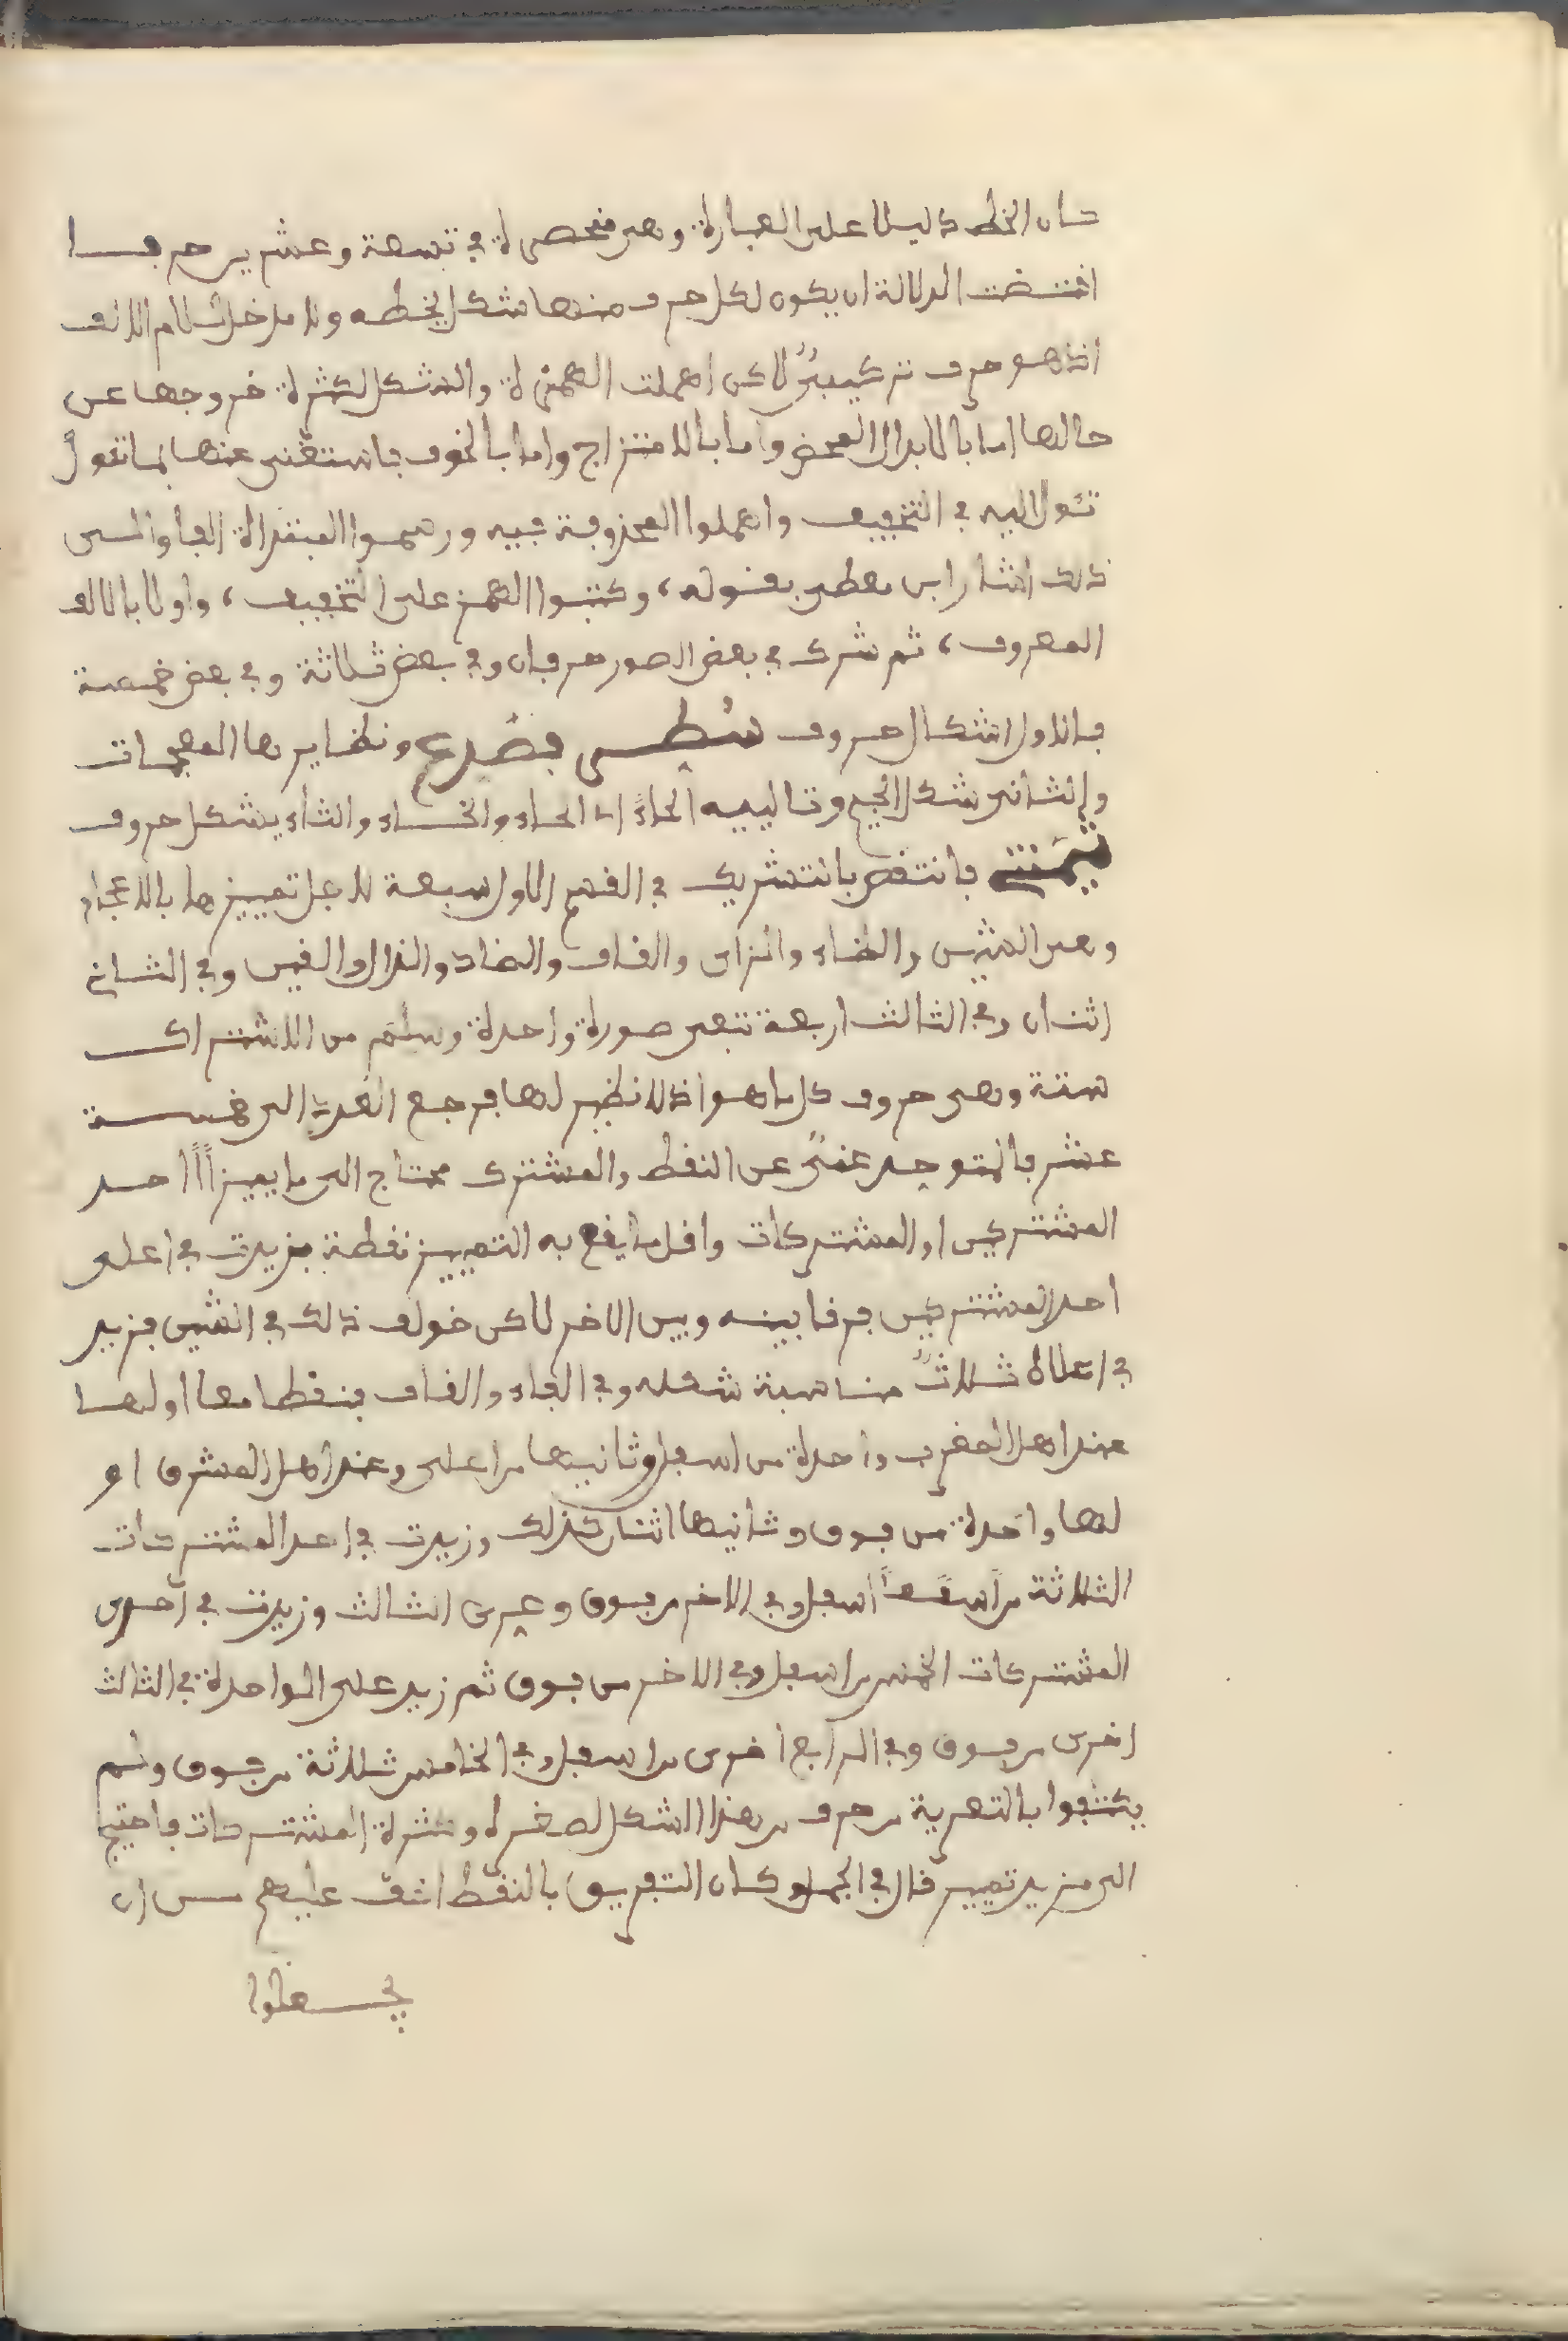 كان الخط دليلا على العبارة وهي منحصرة في تسعة وعشرين حرفا
اقتضت الدلالة ان يكون لكل حرف منها شكل يخطه ولا مدخل للام الالف
اذ هو حرف تركيبي لاكن اهملت الهمزة والشكل لكثرة خروجها عن
حالها اما بالابدال المحض واما بالامتزاج واما بالحذف فاستغنى عنها بما تئول
تئول اليه في التخفيف واهملوا المحذوفة فيه ورسموا المبتدأة الفا والى
ذلك اشار ابن معطي بقوله، وكتبوا الهمز على التخفيف، واولا بالالف
المعروف، ثم شرك في بعض الصور حرفان وفي بعض ثلاثة وفي بعض خمسة
فالاول اشكال حروف سطى فصدرع ونظايرها المعجمات
والثاني شكل الجيم وتالييه الحاء الحاء والخاء والثالث شكل حروف
ثيمنتب فانتفى بالتشريك في القسم الاول سبعة لاجل تمييزها بالاعجام
وهي الشين والظاء والزاي والقاف والضاد والذال والغين وفي الثاني
اثنان وفي الثالث اربعة تبقى صورة واحدة وسلم من الاشتراك
ستة وهي حروف كلماهو اذ لا نظير لها فرجع العدد الى خمسة
عشر فالمتوحد غني عن النقط والمشترك محتاج الى ما يميز احد
المشتركين او المشتركات واقل ما يقع به التمييز نقطة فزيدت في اعلى
احد المشتركين فرقا بينه وبين الاخر لاكن خولف ذلك في الشين فزيد
في اعلاه ثلاث مناسبة شكله وفي الفاء والقاف فنقطا معا اولها
عند اهل المغرب واحدة من اسفل وثانيها من اعلى وعند اهل المشرق او
لها واحدة من فوق وثانيها اثنان كذلك وزيدت في احد المشتركات
الثلاثة من اسفل وفي الاخر من فوق وعري الثالث وزيدت في احدى
المشتركات الخمس من اسفل وفي الاخر من فوق ثم زيد على الواحدة في الثالث
اخرى من فوق وفي الرابع اخرى من اسفل وفي الخامس ثلاثة من فوق ولم
يكتفوا بالتعرية من حرف من هذا الشكل لصغره وكثرة المشتركات فاحتيج
الى مزيد تمييز قال في المجمل وكان التفريق بالنقط اخف عليهم من ان
يجعلوا